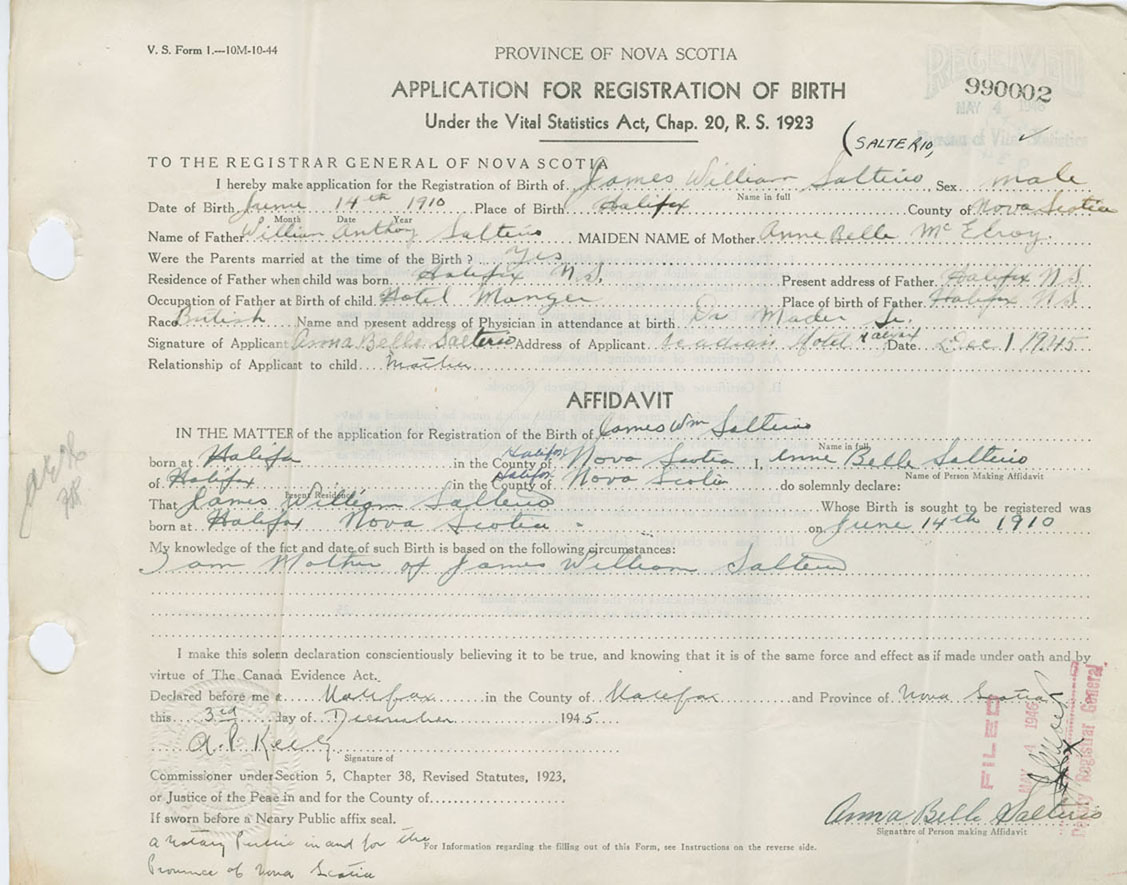 V. S. Form 1.—10M-10-44
PROVINCE OF NOVA SCOTIA
RECEIVED
990002
MAY 4 1946
APPLICATION FOR REGISTRATION OF BIRTH
Under the Vital Statistics Act, Chap. 20, R. S. 1923
Bureau of Vital Statistics
(SALTERIO,
TO THE REGISTRAR GENERAL OF NOVA SCOTIA
I hereby make application for the Registration of Birth of James William Salterio Sex male
Name in full
Date of Birth June 14th 1910 Place of Birth Halifax County of Nova Scotia
Month Date Year
Name of Father William Anthony Salterio MAIDEN NAME of Mother Anne Belle McElroy
Were the Parents married at the time of the Birth? Yes
Residence of Father when child was born. Halifax N.S. Present address of Father. Halifax N S
Occupation of Father at Birth of child. Hotel Manger Place of birth of Father. Halifax N S
Race British Name and present address of Physician in attendance at birth Dr Mader Sr.
Signature of Applicant Anna Belle Salterio Address of Applicant Acadian Hotel Halifax Date Dec 1 1945
Relationship of Applicant to child Mother
AFFIDAVIT
IN THE MATTER of the application for Registration of the Birth of James Wm Salterio
Name in full
born at Halifa in the County of Halifax Nova Scotia I, Anne Belle Salterio
Name of Person Making Affidavit
of Halifax in the County of Halifax Nova Scotia do solemnly declare:
Present Residence
That James William Salterio Whose Birth is sought to be registered was
born at Halifax Nova Scotia - on June 14th 1910
My knowledge of the fict and date of such Birth is based on the following circumstances:
I am Mother of James William Salterio
I make this solern declaration conscientiously believing it to be true, and knowing that it is of the same force and effect as if made under oath and by
virtue of The Canada Evidence Act.
Declared before me at Halifax in the County of Halifax and Province of Nova Scotia
this 3rd day of December 1945
A. P. Keely
Signature of
Commissioner under Section 5, Chapter 38, Revised Statutes, 1923,
or Justice of the Peae in and for the County of
If sworn before a Neary Public affix seal.
a Notary Public in and for the
Province of Nova Scotia
For Information regarding the filling out of this Form, see Instructions on the reverse side.
Anna Belle Salterio
Signature of Person making Affidavit
FILED
MAY 4 1946
Deputy Registrar General